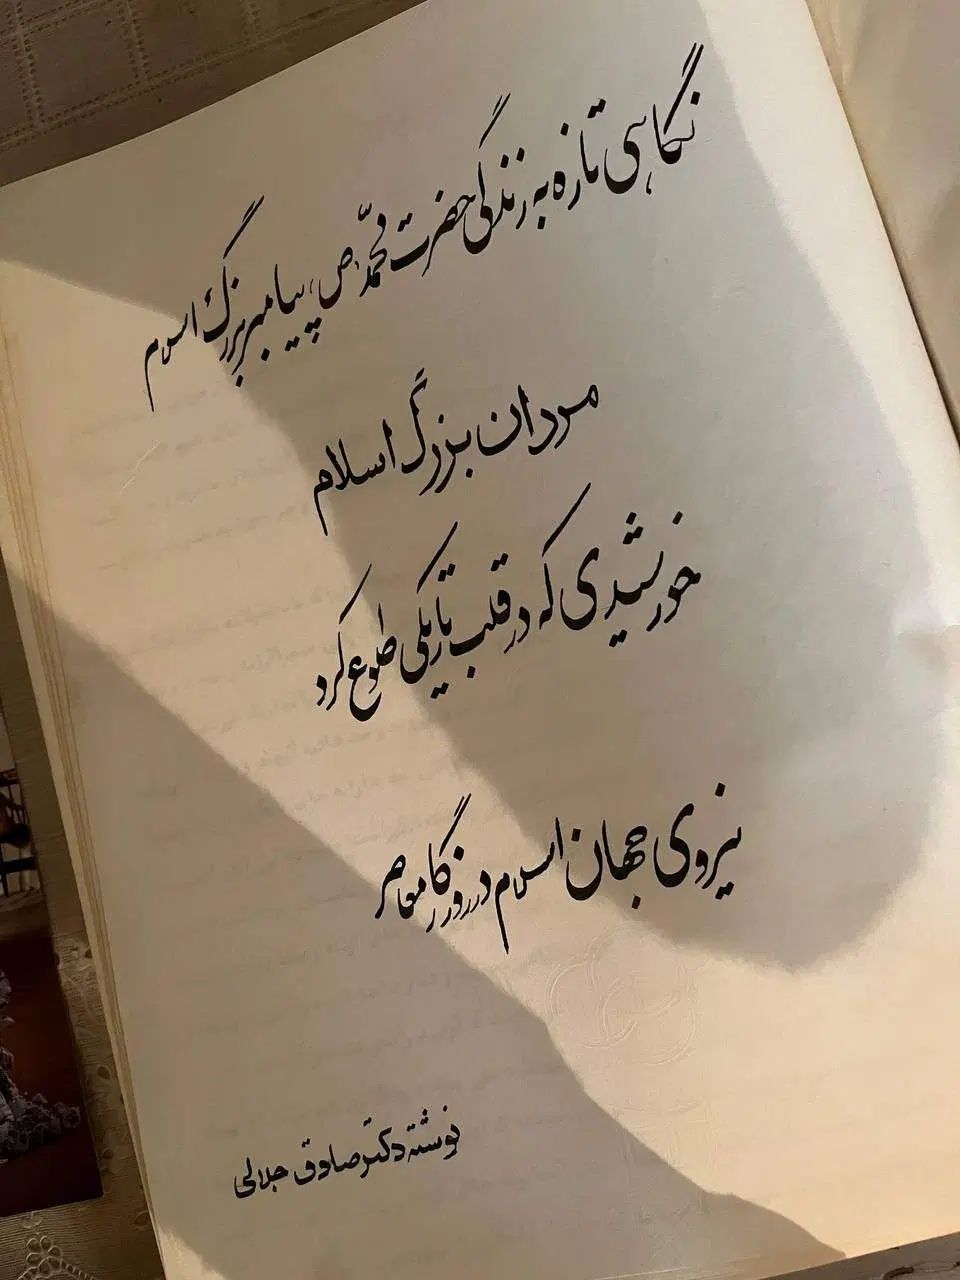 نگاهی تازه به زندگی حضرت محمّد ص، پیامبر بزرگ اسلام
مردان بزرگ اسلام
خورشیدی که در قلب تاریکی طلوع کرد
نیروی جهان اسلام در روزگار معاصر
نوشته دکتر صادق جلالی